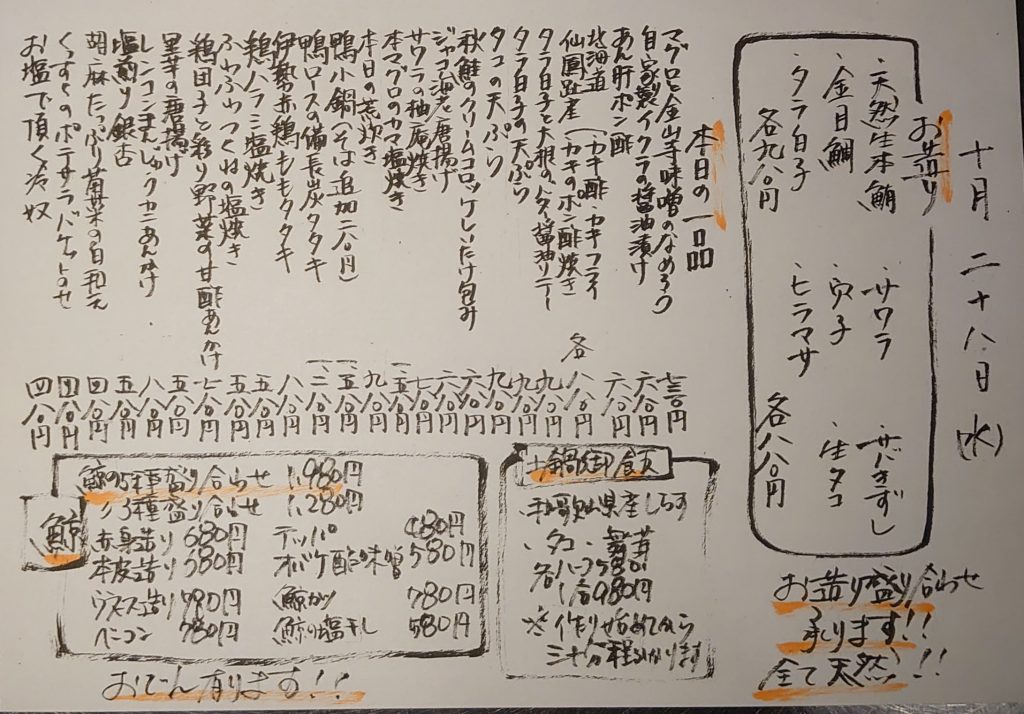 十月二十八日(水)
お造り
・天然生本鮪
・金目鯛
・タラ白子
各九八〇円
・サワラ
・穴子
・ヒラマサ
・サバきずし
・生タコ
各八八〇円
お造り盛り合わせ
承ります!!
全て天然!!
本日の一品
マグロと金山寺味噌のなめろう 七三〇円
自家製イクラの醤油漬け 六八〇円
あん肝ポン酢 六八〇円
北海道 (・カキ酢・カキフライ
仙鳳趾産 (・カキのポン酢焼き 各 八八〇円
タラ白子と大根のバター醤油ソテー 九八〇円
タラ白子の天ぷら 九八〇円
タコの天ぷら 九八〇円
秋鮭のクリームコロッケしいたけ包み 六八〇円
ジャコ海老唐揚げ 六八〇円
サワラの柚庵焼き 七八〇円
本マグロのカマ塩焼き 一、五八〇円
本日の荒炊き 九八〇円
鴨小鍋(そば追加二八〇円) 一、五八〇円
鴨ロースの備長炭タタキ 一、二八〇円
伊勢赤鶏ももタタキ 八八〇円
鶏ハラミ塩焼き 五八〇円
ふわふわつくねの塩焼き 五八〇円
鶏団子と彩り野菜の甘酢あんかけ 七八〇円
里芋の唐揚げ 五八〇円
レンコンまんじゅうカニあんかけ 八八〇円
塩煎り銀杏 五八〇円
胡麻たっぷり菊菜の白和え 四八〇円
くんずりのポテサラバケットのせ 四八〇円
お塩で頂く冷奴 四八〇円
鯨
鯨の5種盛り合わせ 1,980円
〃 3種盛り合わせ 1,280円
赤身造り 680円
本皮造り 580円
ウネス造り 780円
ベーコン 780円
テッパ 480円
オバケ酢味噌 580円
鯨かつ 780円
鯨の塩干し 580円
おでん有ります!!
土鍋御飯
・和歌山県産しらす
・タコ ・舞茸
各ハーフ 580円
1合 980円
※作り始めてから
三十分程かかります